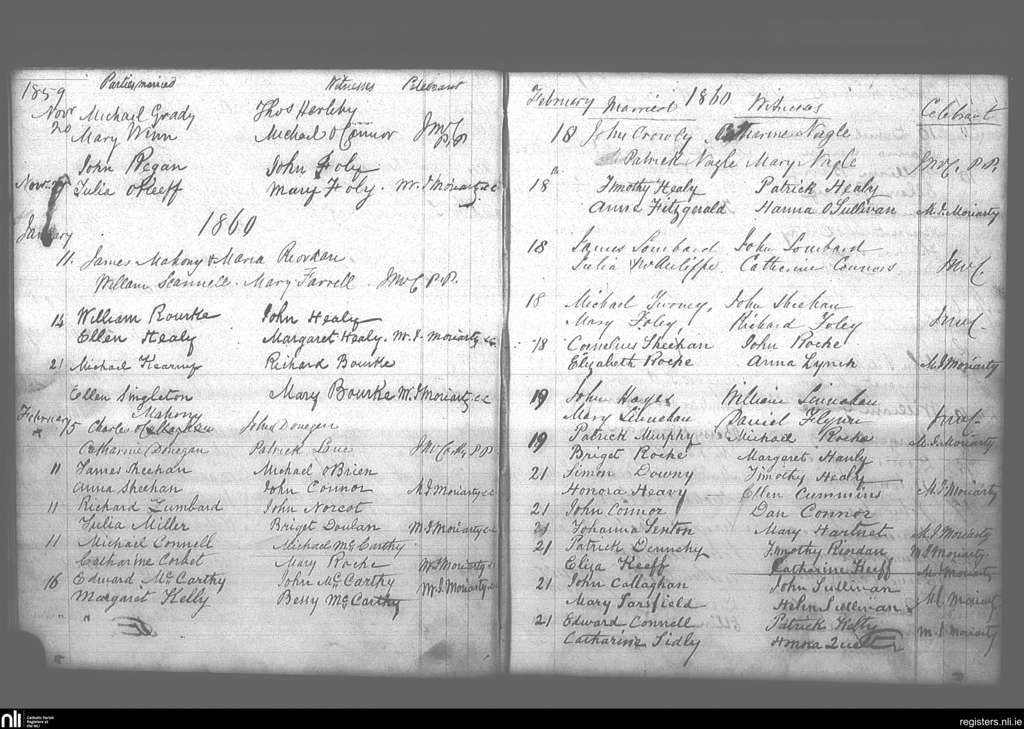 1859 Parties married Witnesses Celebrant
Novr Michael Grady Thos Herlehy
20 Mary Winn Michael O Connor JMcC P.P
John Regan John Foly
Novr. 27 Julia O Keeff Mary Foly. M. I Moriarty c c
1860
January
11. James Mahony & Maria Reordan
William Scannell. Mary Farrell. JMcC P.P.
14 William Rourke John Healy
Ellen Healy Margaret Healy. M. I. Moriarty cc
21 Michael Kearney Richard Bourke
Ellen Singleton Mary Bourke M. I Moriarty c c
February Mahony
5 Charles O Callaghan John Donegan
Catharine Donegan Patrick JMcCarthy P.P
11 James Sheehan Michael O Brien
Anna Sheehan John Connor M. I Moriarty c c
11 Richard Lumbard John Norcot
Julia Miller Briget Doulan M I Moriarty c c
11 Michael Connell Michael McCarthy
Catharine Corbet Mary Roche M I Moriarty c c
16 Edward McCarthy John McCarthy M. I. Moriarty cc
Margaret Kelly Bessy McCarthy
"
February Married 1860 Witnesses Celebrant
18 John Crowly Catharine Nagle
Patrick Nagle Mary Nagle JMcC. P.P.
18th Timothy Healy Patrick Healy
Anna Fitzgerald Hanna O Sullivan M. I. Moriarty
18 James Lombard John Lombard
Julia McAuliffe Catherine Connors JMcC
18 Michael Twomey, John Sheehan
Mary Foley, Richard Foley JMcC
18 Cornelius Sheehan John Roche
Elizabeth Roche Anna Lynch M I Moriarty
19 John Hayes William Linnehan
Mary Linnehan Daniel Flynn JMcC
19 Patrick Murphy Michael Roche M. I. Moriarty
Briget Roche Margaret Hanly
21 Simon Downy Timothy Healy
Honora Heavy Ellen Cummins M. I Moriarty
21 John Connor Dan Connor
21 Johanna Fenton Mary Hartnet M I Moriarty
21 Patrick Dennehy Timothy Riordan M I Moriarty
Eliza Keeff Catharine Keeff M I Moriarty
21 John Callaghan John Sullivan
Mary Sarsfield Helen Sullivan M Moriarty
21 Edward Connell Patrick M I Moriarty
Catharine Sidly Honora
nli Catholic Parish Registers at the NLI
registers.nli.ie